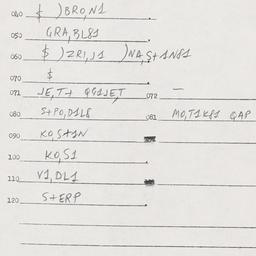 040 $ )BRO,N1
050 GRA,BL81
060 $ )ZRI,J1 )NA,S+1N81
070 $
071 JE,T+ QG1JET 072 —
080 S+PO,D1L8 081 MO,T1K81 QAP
090 KO,S+1N
100 KO,S1
110 V1,DL1
120 S+ERP